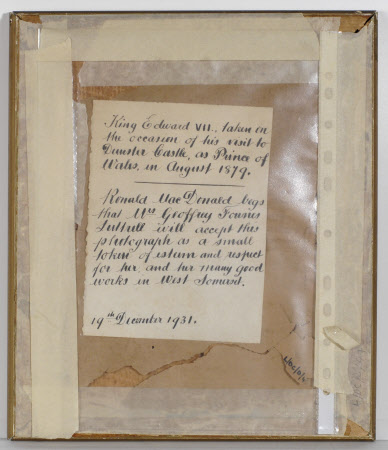 King Edward VII., taken on
the occasion of his visit to
Dunster Castle, as Prince of
Wales, in August 1879.
Ronald MacDonald begs
that Mrs Geoffrey Fownes
Luttrell will accept this
photograph as a small
token of esteem and respect
for her, and her many good
works in West Somerset.
19th December 1931.